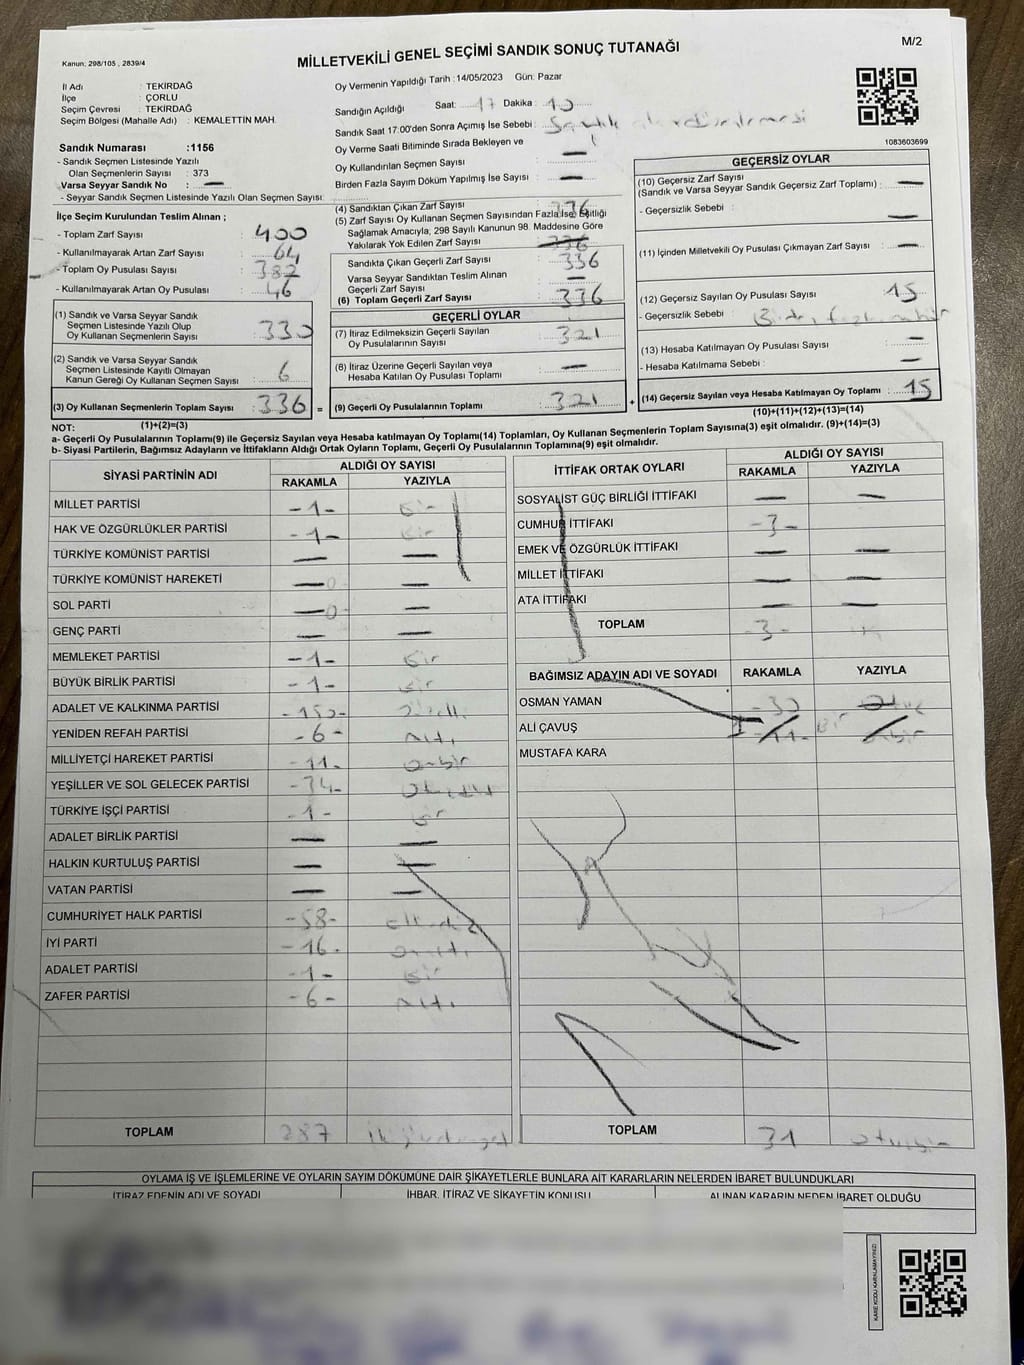 M/2
MİLLETVEKİLİ GENEL SEÇİMİ SANDIK SONUÇ TUTANAĞI
Kanun; 298/105 , 2839/4
İl Adı : TEKİRDAĞ
İlçe : ÇORLU
Seçim Çevresi : TEKİRDAĞ
Seçim Bölgesi (Mahalle Adı) : KEMALETTİN MAH.
Sandık Numarası :1156
- Sandık Seçmen Listesinde Yazılı
Olan Seçmenlerin Sayısı : 373
Varsa Seyyar Sandık No : —
- Seyyar Sandık Seçmen Listesinde Yazılı Olan Seçmen Sayısı:
Oy Vermenin Yapıldığı Tarih :14/05/2023 Gün: Pazar
Sandığın Açıldığı Saat: 17 Dakika : 10
Sandık Saat 17:00'den Sonra Açımış İse Sebebi : Sandık
Oy Verme Saati Bitiminde Sırada Bekleyen ve
Oy Kullandırılan Seçmen Sayısı : —
Birden Fazla Sayım Döküm Yapılmış İse Sayısı : —
1083603699
İlçe Seçim Kurulundan Teslim Alınan ;
- Toplam Zarf Sayısı : 400
- Kullanılmayarak Artan Zarf Sayısı : 64
- Toplam Oy Pusulası Sayısı : 382
- Kullanılmayarak Artan Oy Pusulası : 46
(1) Sandık ve Varsa Seyyar Sandık
Seçmen Listesinde Yazılı Olup
Oy Kullanan Seçmenlerin Sayısı : 330
(2) Sandık ve Varsa Seyyar Sandık
Seçmen Listesinde Kayıtlı Olmayan
Kanun Gereği Oy Kullanan Seçmen Sayısı : 6
(3) Oy Kullanan Seçmenlerin Toplam Sayısı : 336 =
(1)+(2)=(3)
(4) Sandıktan Çıkan Zarf Sayısı : 336
(5) Zarf Sayısı Oy Kullanan Seçmen Sayısından Fazla İse, Eşitliği
Sağlamak Amacıyla, 298 Sayılı Kanunun 98. Maddesine Göre
Yakılarak Yok Edilen Zarf Sayısı : 336
Sandıkta Çıkan Geçerli Zarf Sayısı : 336
Varsa Seyyar Sandıktan Teslim Alınan
Geçerli Zarf Sayısı : —
(6) Toplam Geçerli Zarf Sayısı : 336
GEÇERLİ OYLAR
(7) İtiraz Edilmeksizin Geçerli Sayılan
Oy Pusulalarının Sayısı : 321
(8) İtiraz Üzerine Geçerli Sayılan veya
Hesaba Katılan Oy Pusulası Toplamı : —
(9) Geçerli Oy Pusulalarının Toplamı : 321 +
GEÇERSİZ OYLAR
(10) Geçersiz Zarf Sayısı
(Sandık ve Varsa Seyyar Sandık Geçersiz Zarf Toplamı) : —
- Geçersizlik Sebebi : —
(11) İçinden Milletvekili Oy Pusulası Çıkmayan Zarf Sayısı : —
(12) Geçersiz Sayılan Oy Pusulası Sayısı : 15
- Geçersizlik Sebebi :
(13) Hesaba Katılmayan Oy Pusulası Sayısı : —
- Hesaba Katılmama Sebebi : —
(14) Geçersiz Sayılan veya Hesaba Katılmayan Oy Toplamı : 15
(10)+(11)+(12)+(13)=(14)
NOT:
a- Geçerli Oy Pusulalarının Toplamı(9) ile Geçersiz Sayılan veya Hesaba katılmayan Oy Toplamı(14) Toplamları, Oy Kullanan Seçmenlerin Toplam Sayısına(3) eşit olmalıdır. (9)+(14)=(3)
b- Siyasi Partilerin, Bağımsız Adayların ve İttifakların Aldığı Ortak Oyların Toplamı, Geçerli Oy Pusulalarının Toplamına(9) eşit olmalıdır.
SİYASİ PARTİNİN ADI ALDIĞI OY SAYISI
RAKAMLA YAZIYLA
MİLLET PARTİSİ -1- bir
HAK VE ÖZGÜRLÜKLER PARTİSİ -1- bir
TÜRKİYE KOMÜNİST PARTİSİ — —
TÜRKİYE KOMÜNİST HAREKETİ — 0 —
SOL PARTİ — 0 —
GENÇ PARTİ — —
MEMLEKET PARTİSİ -1- bir
BÜYÜK BİRLİK PARTİSİ -1- bir
ADALET VE KALKINMA PARTİSİ -150-
YENİDEN REFAH PARTİSİ -6- Altı
MİLLİYETÇİ HAREKET PARTİSİ -11- onbir
YEŞİLLER VE SOL GELECEK PARTİSİ -34-
TÜRKİYE İŞÇİ PARTİSİ -1- bir
ADALET BİRLİK PARTİSİ — —
HALKIN KURTULUŞ PARTİSİ — —
VATAN PARTİSİ — —
CUMHURİYET HALK PARTİSİ -58- ellisekiz
İYİ PARTİ -16- onaltı
ADALET PARTİSİ -1- bir
ZAFER PARTİSİ -6- Altı
TOPLAM 287
İTTİFAK ORTAK OYLARI ALDIĞI OY SAYISI
RAKAMLA YAZIYLA
SOSYALİST GÜÇ BİRLİĞİ İTTİFAKI — —
CUMHUR İTTİFAKI -3-
EMEK VE ÖZGÜRLÜK İTTİFAKI — —
MİLLET İTTİFAKI — —
ATA İTTİFAKI — —
TOPLAM -3-
BAĞIMSIZ ADAYIN ADI VE SOYADI RAKAMLA YAZIYLA
OSMAN YAMAN -30 Otuz
ALİ ÇAVUŞ 1 -11- Bir onbir
MUSTAFA KARA
TOPLAM 31 otuzbir
OYLAMA İŞ VE İŞLEMLERİNE VE OYLARIN SAYIM DÖKÜMÜNE DAİR ŞİKAYETLERLE BUNLARA AİT KARARLARIN NELERDEN İBARET BULUNDUKLARI
İTİRAZ EDENİN ADI VE SOYADI İHBAR, İTİRAZ VE ŞİKAYETİN KONUSU ALINAN KARARIN NEDEN İBARET OLDUĞU
KARE KODU KARALAMAYINIZ!